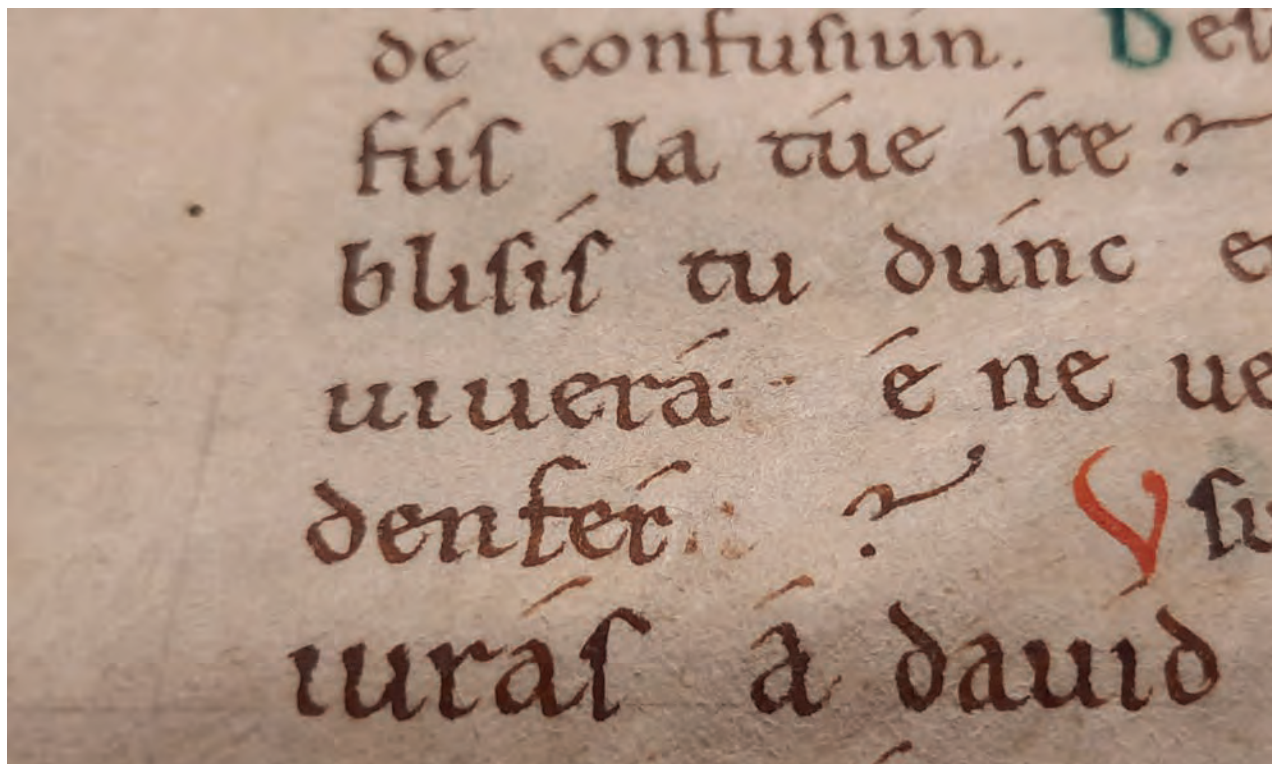 de confusiun. Des
fus la túe íre?
blisís tu dúnc e
uiuerá é ne ue
denfér ?  Vsu
iurás á dauíd